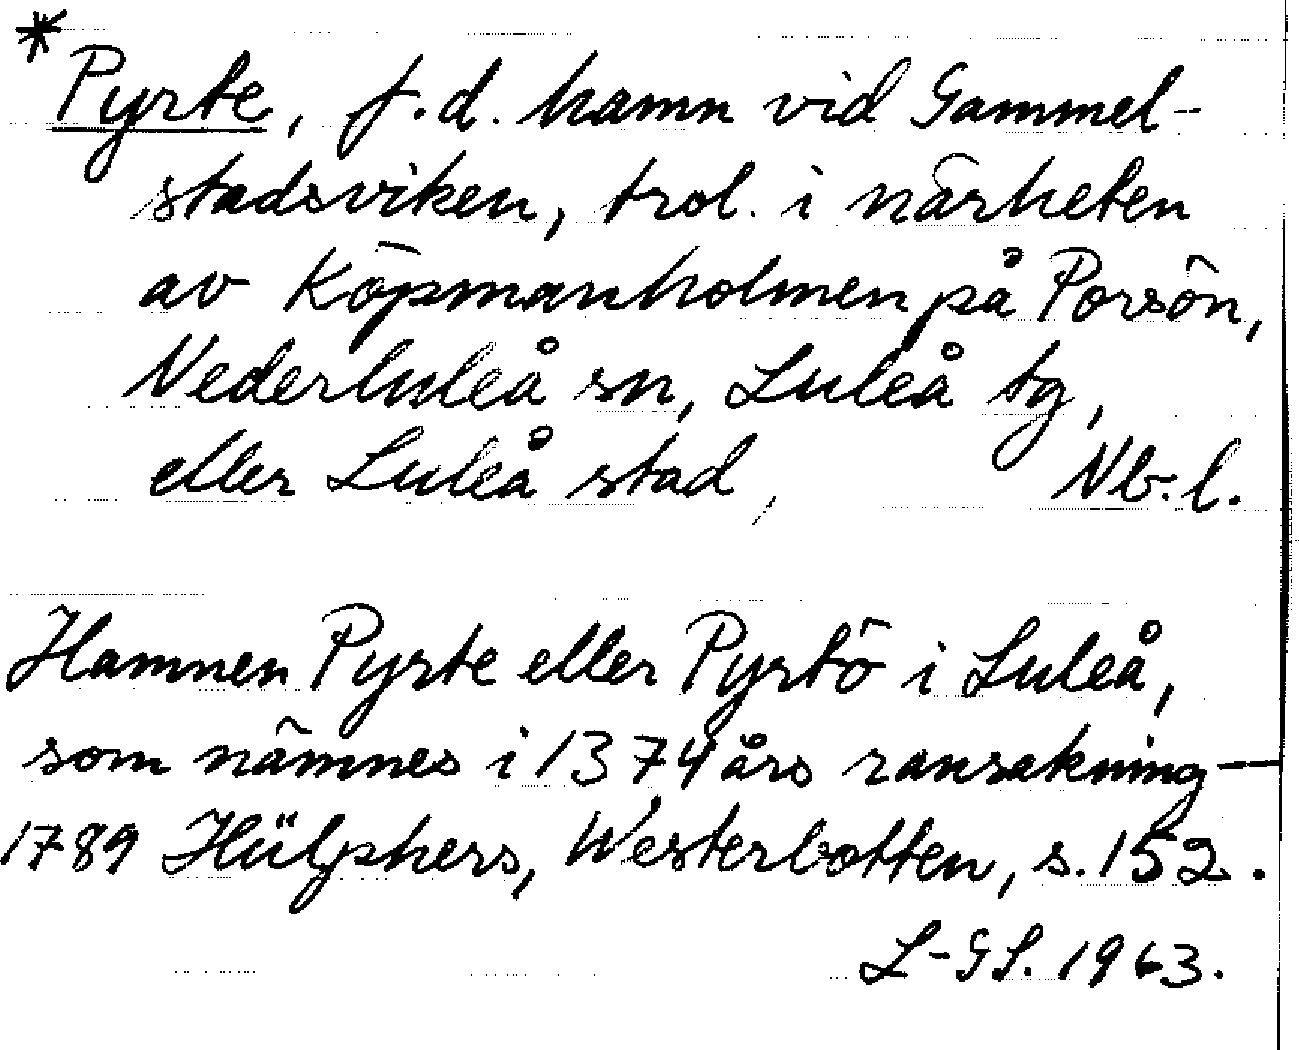 * Pyrte, f.d. hamn vid Gammel-
stadsviken, trol. i närheten
av Köpmanholmen på Porsön,
Nederluleå sn, Luleå tg,
eller Luleå stad, Nb. l.
Hamnen Pyrte eller Pyrtö i Luleå,
som nämnes i 1374 års ransakning —
1789 Hülphers, Westerbotten, s. 152.
L-GS. 1963.